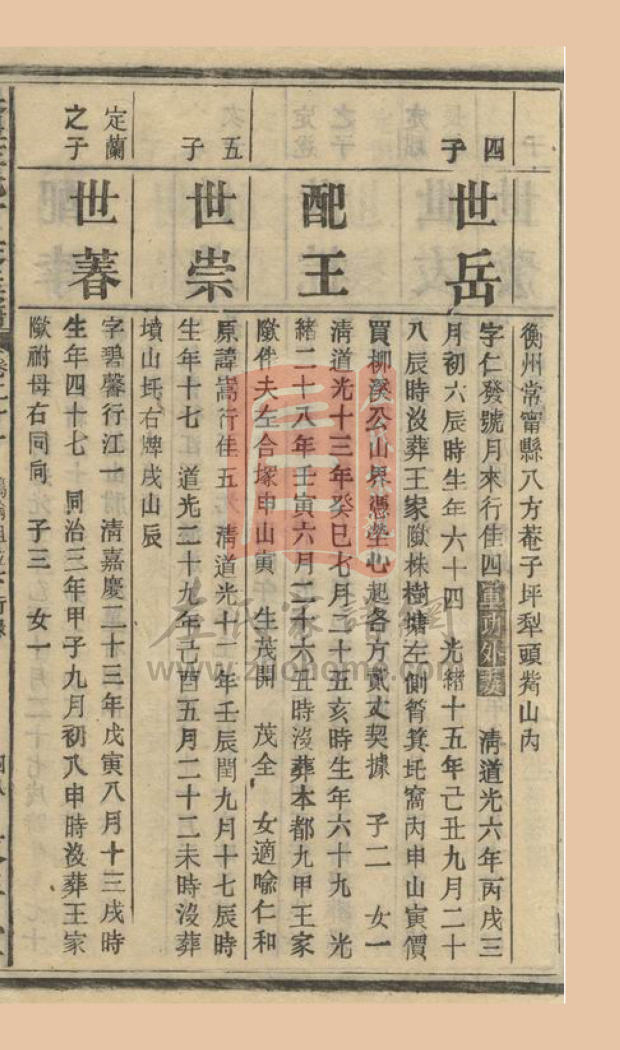 衡州常甯縣八方菴子坪犁頭觜山內
四子
世岳
字仁發號月來行佳四 軍功外委 清道光六年丙戌三
月初六辰時生年六十四 光緒十五年己丑九月二十
八辰時沒葬王家歐株樹塘左側筲箕坵窩內申山寅價
買柳溪公山界憑塋心起各方貳丈契據 子二 女一
配王
清道光十三年癸巳七月二十五亥時生年六十九 光
緒二十八年壬寅六月二十六丑時沒葬本都九甲王家
歐伴夫左合塚申山寅 生茂開 茂全 女適喻仁和
五子
世崇
原諱嵩行佳五 清道光十二年壬辰閏九月十七辰時
生年十七 道光二十九年己酉五月二十二未時沒葬
墳山坵右牌戌山辰
定蘭之子
世萶
字碧馨行江一 清嘉慶二十三年戊寅八月十三戌時
生年四十七 同治三年甲子九月初八申時沒葬王家
歐祔母右同向 子三 女一
左氏家譜網
www.zuohome.com